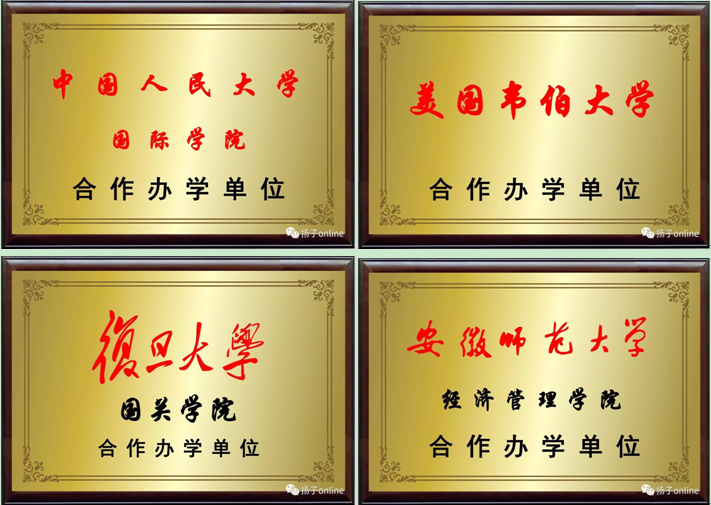 中国人民大学
国际学院
合作办学单位
扬子online
美国韦伯大学
合作办学单位
扬子online
復旦大學
国关学院
合作办学单位
扬子online
安徽师范大学
经济管理学院
合作办学单位
扬子online